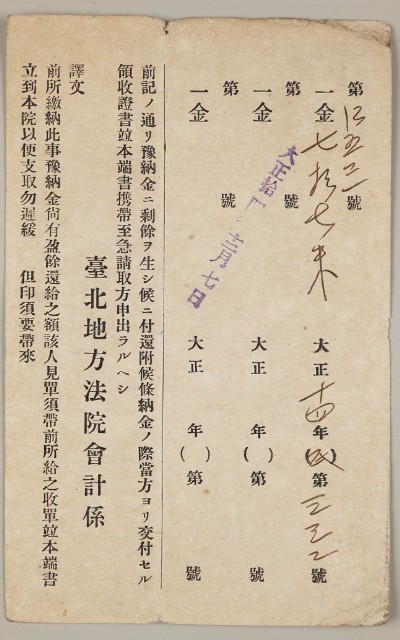 第 號
一金 七拾七 大正十四年( )第 號
第 號
一金 大正 年( )第 號
第 號
一金 大正 年( )第 號
大正拾 月七日
前記ノ通リ豫納金ニ剩餘ヲ生シ候ニ付還附候條納金ノ際當方ヨリ交付セル
領收證書竝本端書携帶至急請取方申出ラルヘシ
臺北地方法院會計係
譯文
前所繳納此事豫納金尙有盈餘還給之額該人見單須帶前所給之收單竝本端書
立到本院以便支取勿遲緩 但印須要帶來